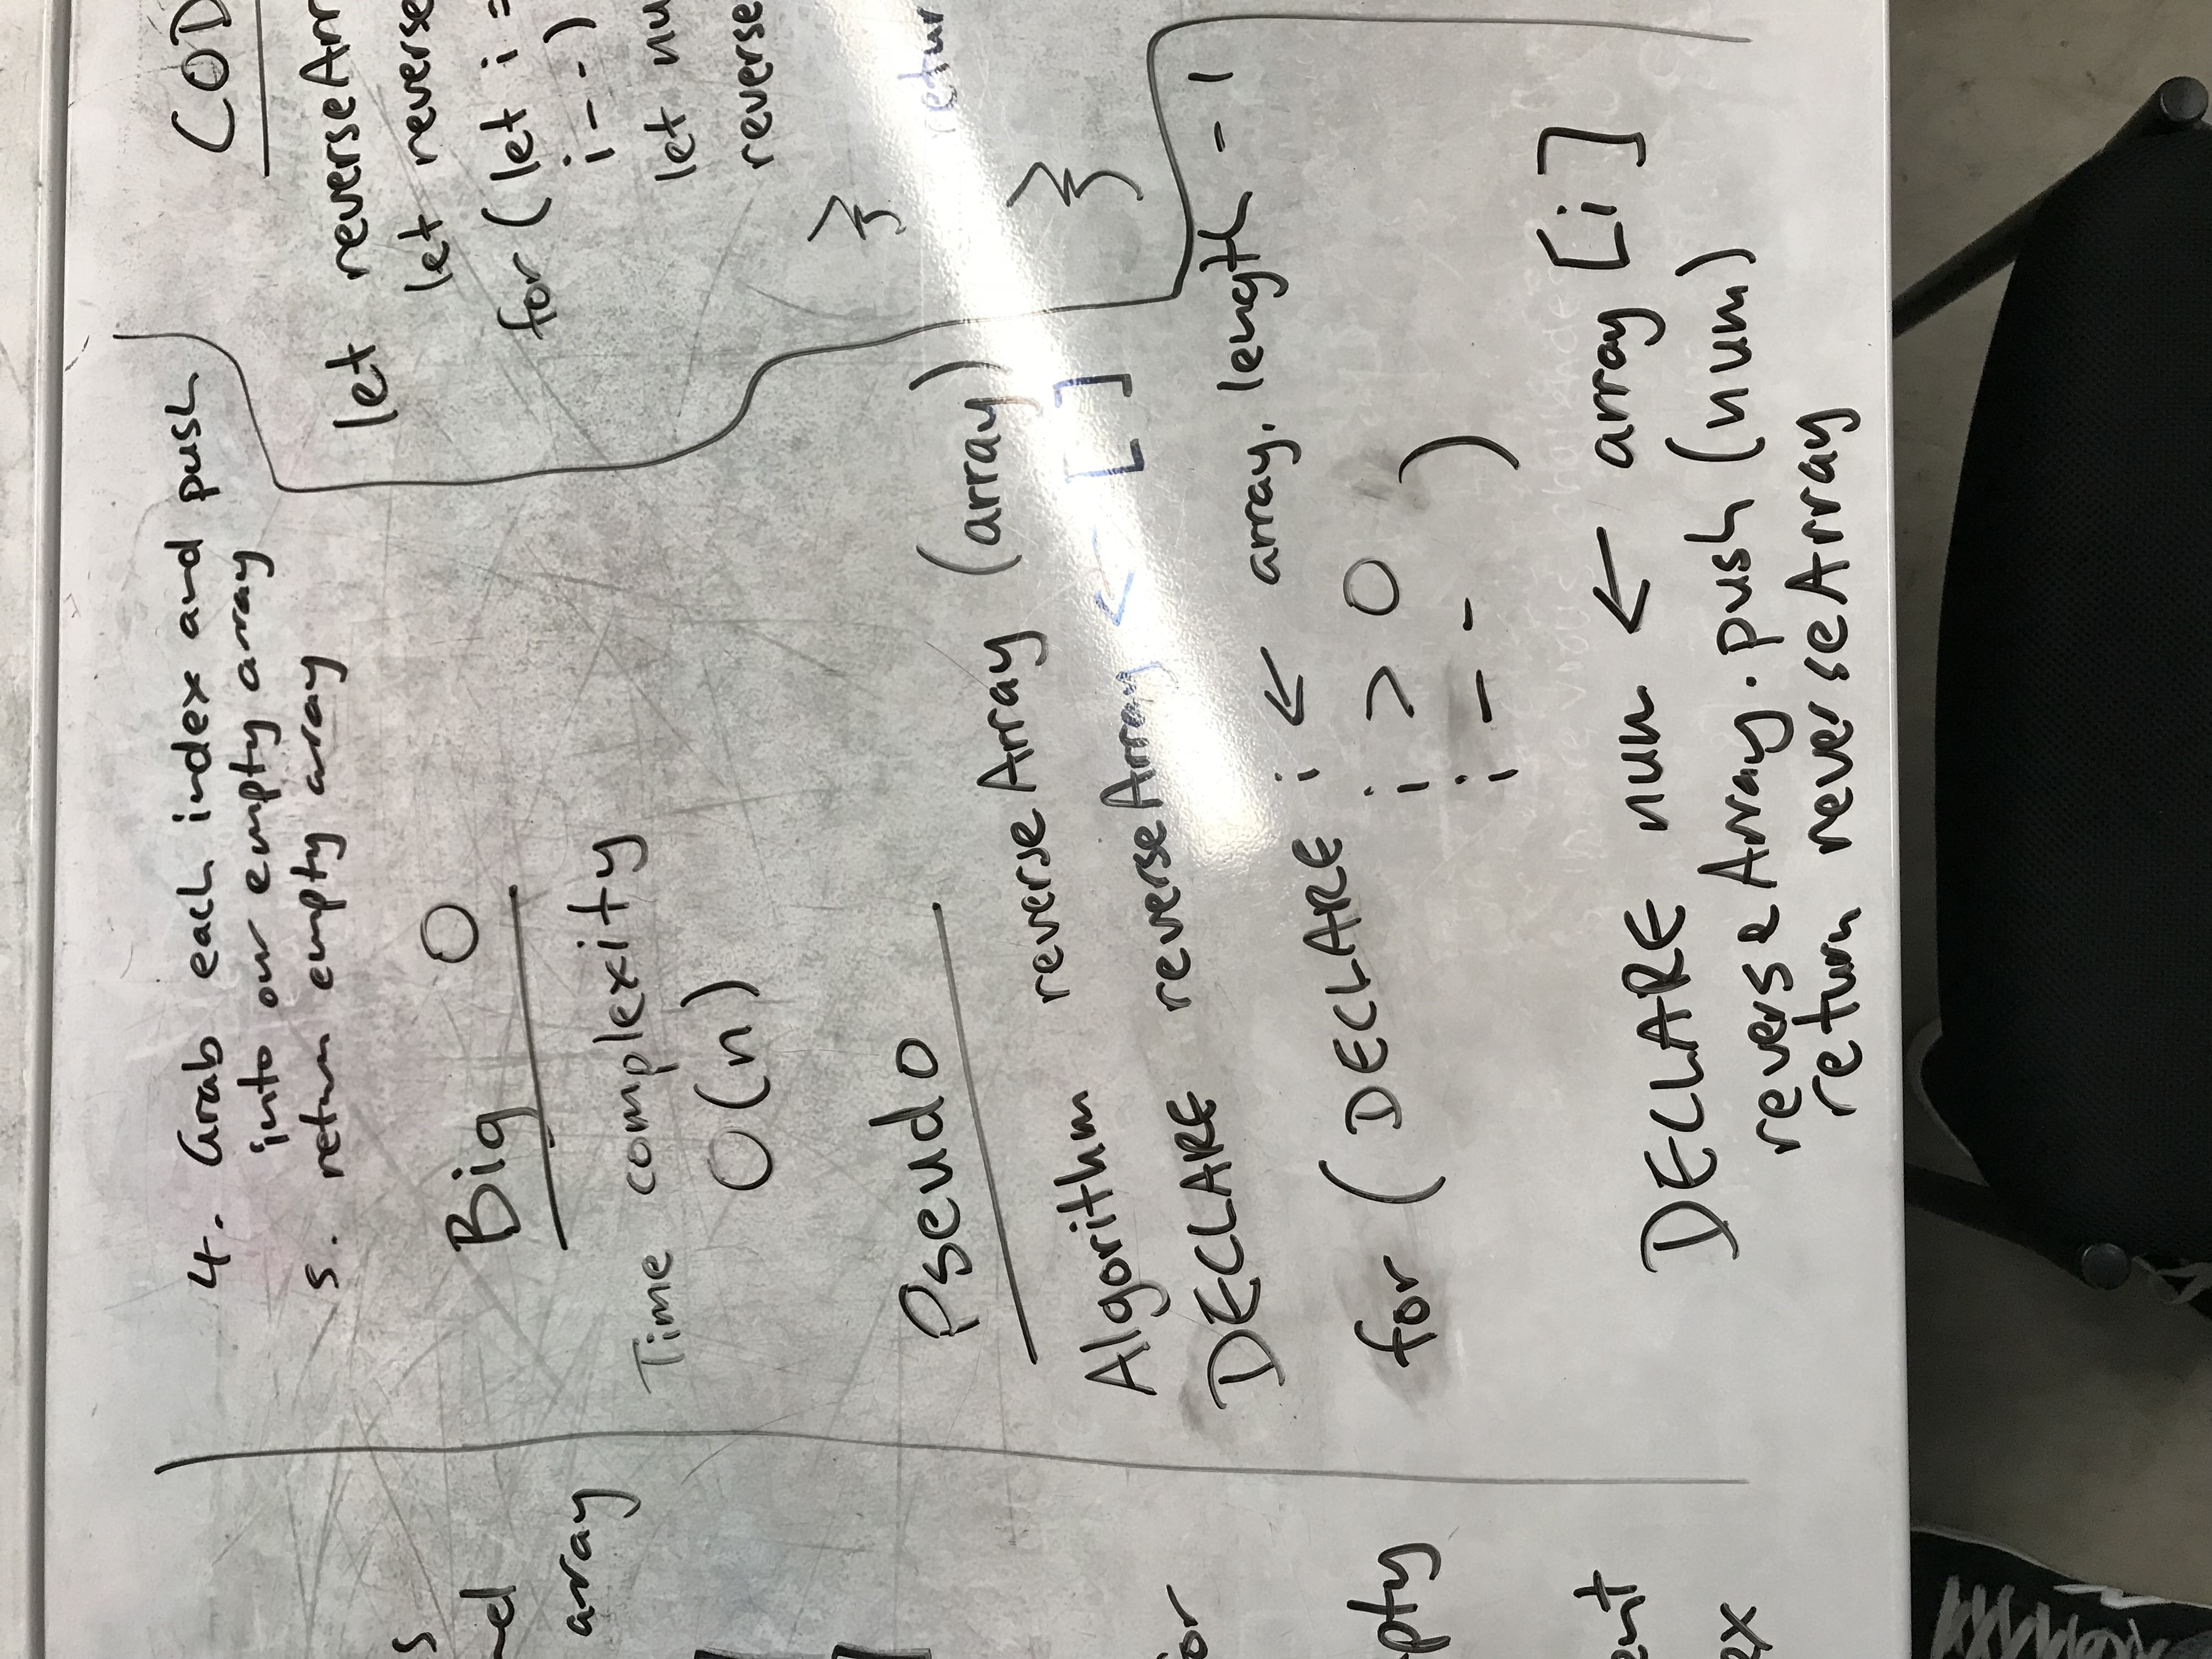 s
array
or
pty
ent
ex
4. Grab each index and push
into our empty array
5. return empty array
Big O
Time complexity
O(n)
Pseudo
Algorithm reverseArray (array)
DECLARE reverseArray ← [ ]
for ( DECLARE i ← array. length - 1
i > 0
i - - )
DECLARE num ← array [i]
reverseArray.push (num)
return reverseArray
COD
let reverseArr
let reverse
for ( let i =
i - - )
let nu
reverse
}
retur
}